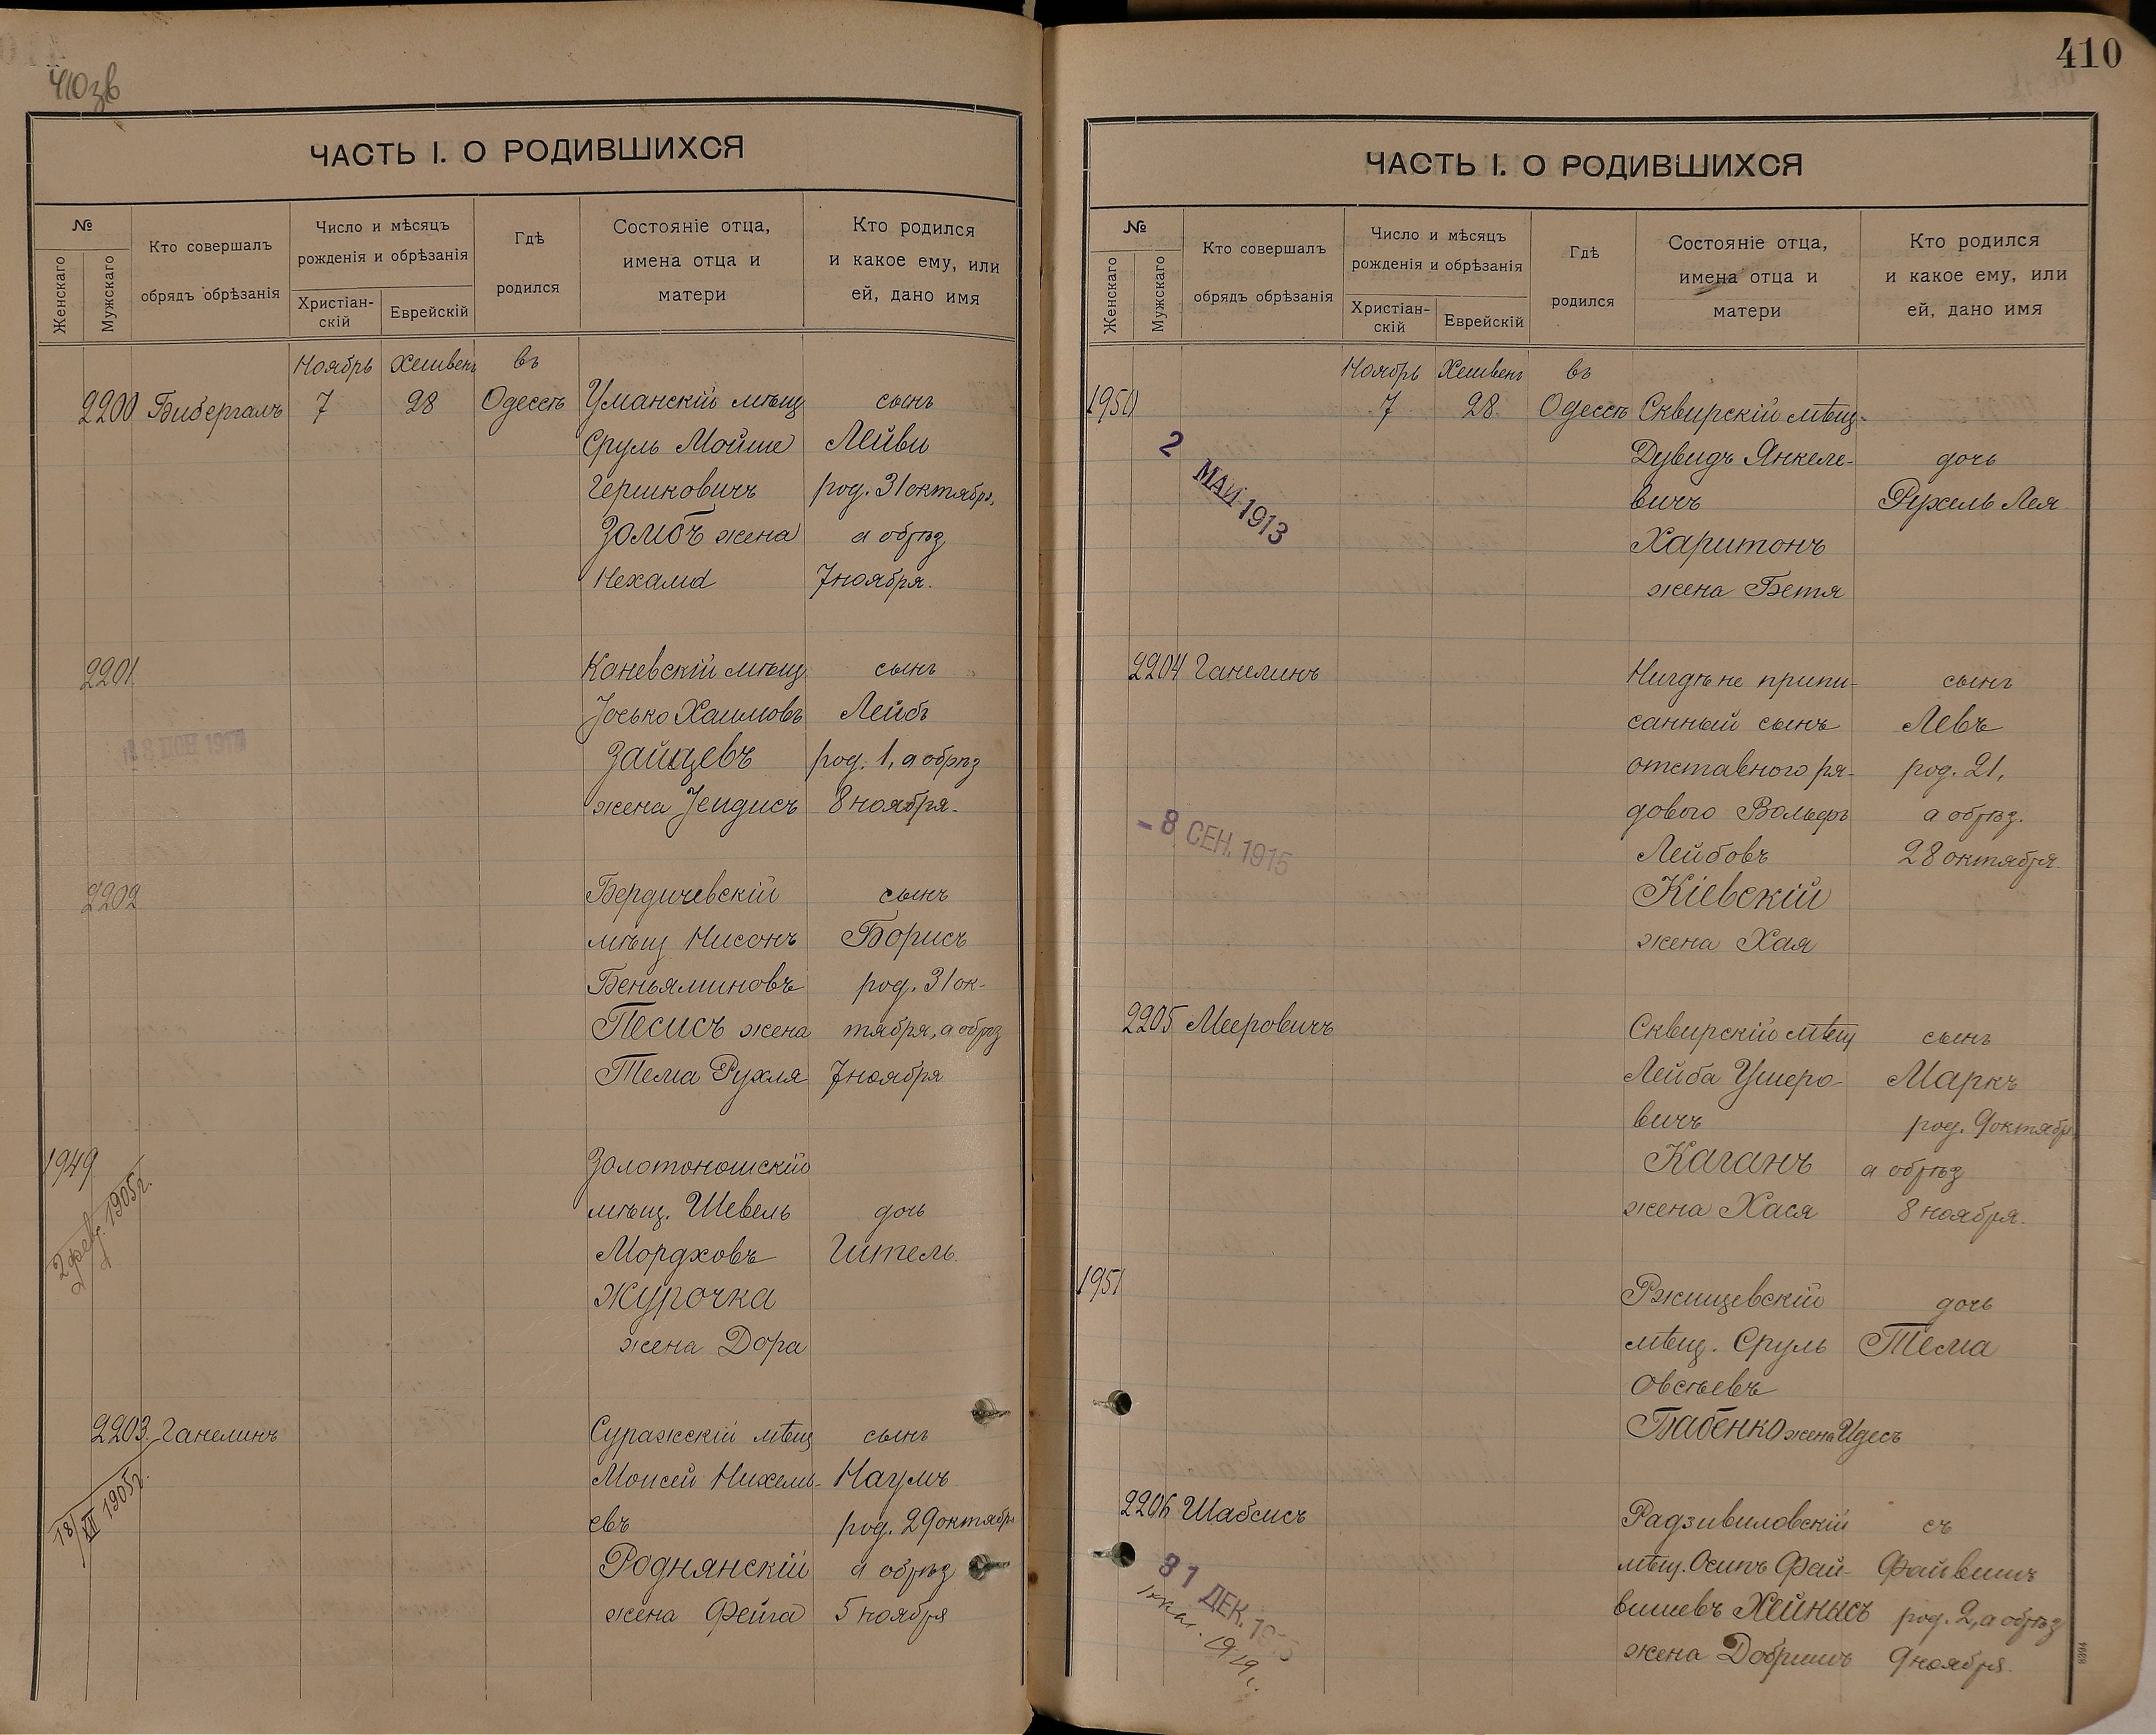 410зв
ЧАСТЬ I. О РОДИВШИХСЯ
№
Женскаго
Мужскаго
Кто совершалъ
обрядъ обрѣзанія
Число и мѣсяцъ
рожденія и обрѣзанія
Христіан-
скій
Еврейскій
Гдѣ
родился
Состояніе отца,
имена отца и
матери
Кто родился
и какое ему, или
ей, дано имя
Ноябрь Хешвень въ
2200 Бибергалъ 7 28 Одессѣ Уманскій мѣщ сынъ
Сруль Мойше Лейви
Гершковичъ род. 31 октября,
Золибъ жена а обрѣз
Нехама 7 ноября.
2201 Каневскій мѣщ сынъ
Іосько Хаимовъ Лейбъ
Зайцевъ род. 1, а обрѣз
жена Іендисъ 8 ноября.
2202 Бердичевскій сынъ
мѣщ Нисонъ Борисъ
Беньяминовъ род. 31 ок-
Песисъ жена тября, а обрѣз
Тема Рухля 7 ноября
1949 Золотоношскій
2 февр. 1905 г.
мѣщ. Шевель дочь
Мордховъ Гитель.
Журочка
жена Дора
2203 Ганелинъ Суражскій мѣщ сынъ
18/XII 1905 г.
Моисей Нихемь- Наумъ
евъ род. 29 октября
Роднянскій а обрѣз
жена Фейга 5 ноября
410
ЧАСТЬ I. О РОДИВШИХСЯ
№
Женскаго
Мужскаго
Кто совершалъ
обрядъ обрѣзанія
Число и мѣсяцъ
рожденія и обрѣзанія
Христіан-
скій
Еврейскій
Гдѣ
родился
Состояніе отца,
имена отца и
матери
Кто родился
и какое ему, или
ей, дано имя
Ноябрь Хешвень въ
1950 7 28 Одессѣ Сквирскій мѣщ-
2 МАЙ 1913
Дувидъ Янкеле- дочь
вичъ Рухель Лея
Харитонъ
жена Бетя
2204 Ганелинъ Нигдѣ не припи- сынъ
санный сынъ Левъ
отставного ря- род. 21,
дового Вольфъ а обрѣз.
- 8 СЕН. 1915
Лейбовъ 28 октября.
Кіевскій
жена Хая
2205 Мееровичъ Сквирскій мѣщ сынъ
Лейба Ушеро- Маркъ
вичъ род. 9 октября,
Каганъ а обрѣз
жена Хася 8 ноября.
1951 Ржищевскій дочь
мѣщ. Сруль Тема
Овсѣевъ
Бабенко жена Идесъ
2206 Шабсисъ Радзивиловскій съ
мѣщ. Осипъ Фай- Файвишъ
31 ДЕК.
вишевъ Хейнысъ род. 2, а обрѣз
жена Добришъ 9 ноября.